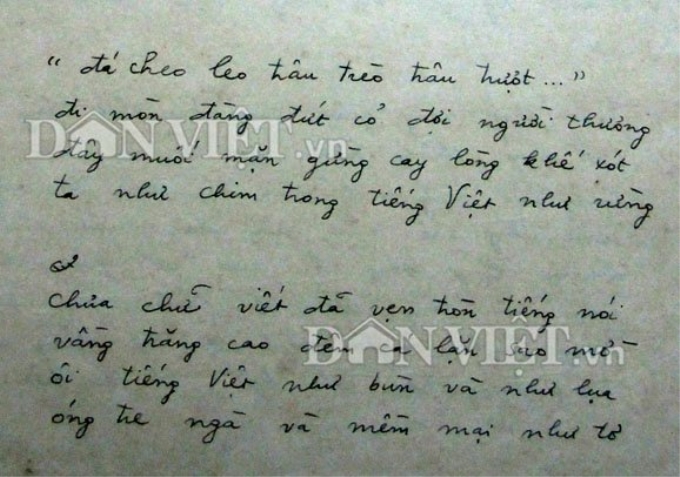 “ đá cheo leo trâu trèo trâu trượt ... ”
đi mòn đàng đứt cỏ đợi người thương
đây muối mặn gừng cay lòng khế xót
ta như chim trong tiếng Việt như rừng
Chưa chữ viết đã vẹn tròn tiếng nói
vầng trăng cao đêm cá lặn sao mờ
ôi tiếng Việt như bùn và như lụa
óng tre ngà và mềm mại như tơ
DÂNVIỆT.vn
DÂNVIỆT.vn